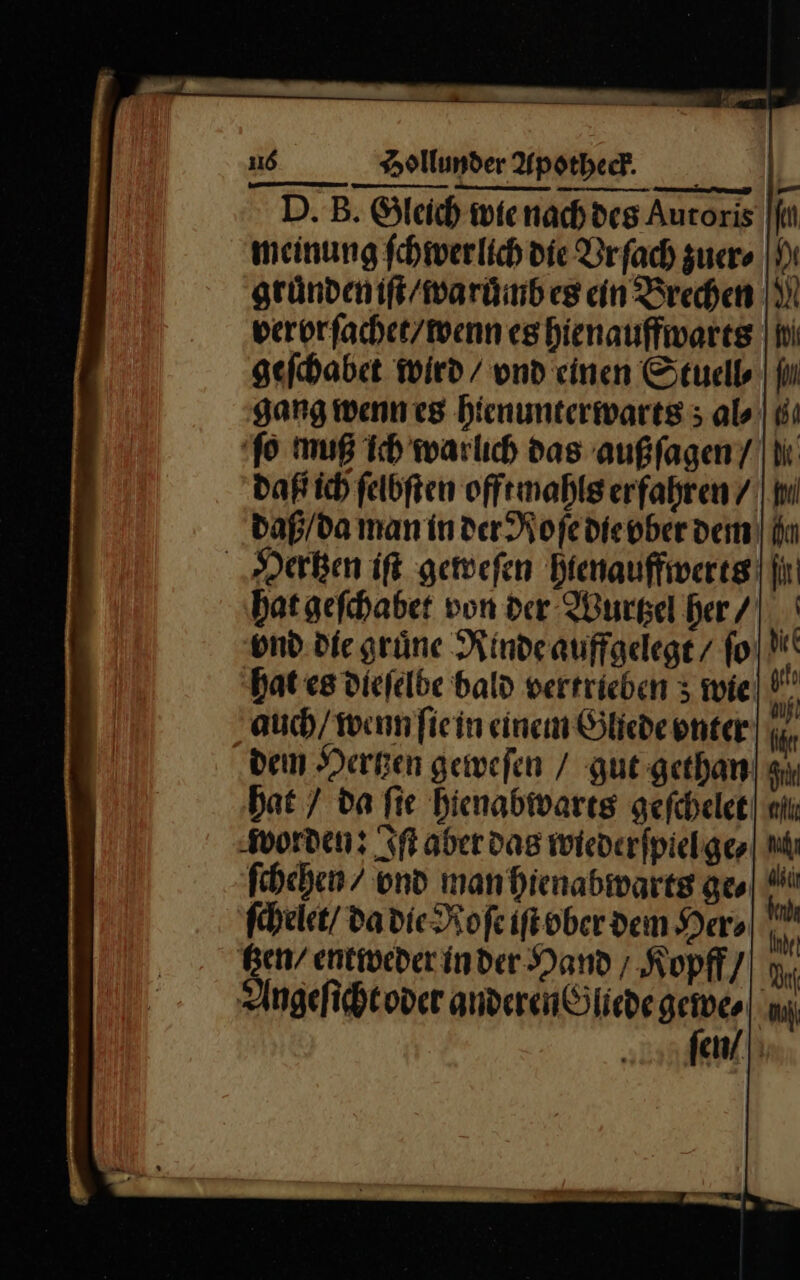 116 Hollunder Apotheck.
D. B. Gleich wie nach des Autoris
meinung ſchwerlich die Vrſach zuer⸗
gruͤnden iſt/waruͤmb es ein Brechen
vervrſachet/wenn es hienauffwarts
geſchabet wird / vnd einen Stuell⸗
gang wenn es hienunterwarts ; al⸗
ſo muß ich warlich das außſagen /
daß ich ſelbſten offtmahls erfahren /
daß/da man in der Roſe die vber dem
Hertzen iſt geweſen hienauffwerts
hat geſchabet von der Wurtzel her /
vnd die gruͤne Rinde auffgelegt / ſo
hat es dieſelbe bald vertrieben ; wie
auch/wenn ſie in einem Gliede vnter
dem Hertzen geweſen / gut gethan
hat / da ſie hienabwarts geſchelet
worden: Iſt aber das wiederſpiel ge⸗
ſchehen / vnd man hienabwarts ge⸗
ſchelet/ da die Roſe iſt vber dem Her⸗
tzen/ entweder in der Hand / Kopff /
Angeſicht oder anderen Gliede gewe⸗
ſen/